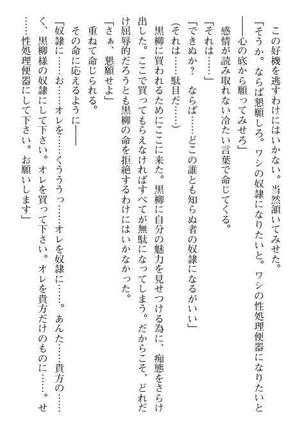 この好機を逃すわけにはいかない。当然頷いてみせた。
「そうか。ならば懇願しろ。ワシの奴隷になりたいと。ワシの性処理便器になりたいと
――心の底から願ってみせろ」
感情が読み取れない冷たい言葉で命じてくる。
「それは……」
「できぬか？　ならば……どこの誰とも知らぬ者の奴隷になるがいい」
（それは……駄目だ……）
黒柳に買われるためにここに来た。黒柳に自分の魅力を見せつける為に、痴態をさらけ
出した。ここで買ってもらえなければすべてが無駄になってしまう。だからこそ、どれだ
け屈辱的だろうとも黒柳の命を拒絶するわけにはいかなかった。
「さぁ、懇願せよ」
重ねて命じられる。
その命に応えるように――
「奴隷に……お……オレを……くううっ……オレを奴隷に……。あんた……貴方の……
く、黒柳様の奴隷にして下さい。オレを買って下さい。オレを貴方だけのものに……。せ
……性処理便器にして下さい。お願いします」